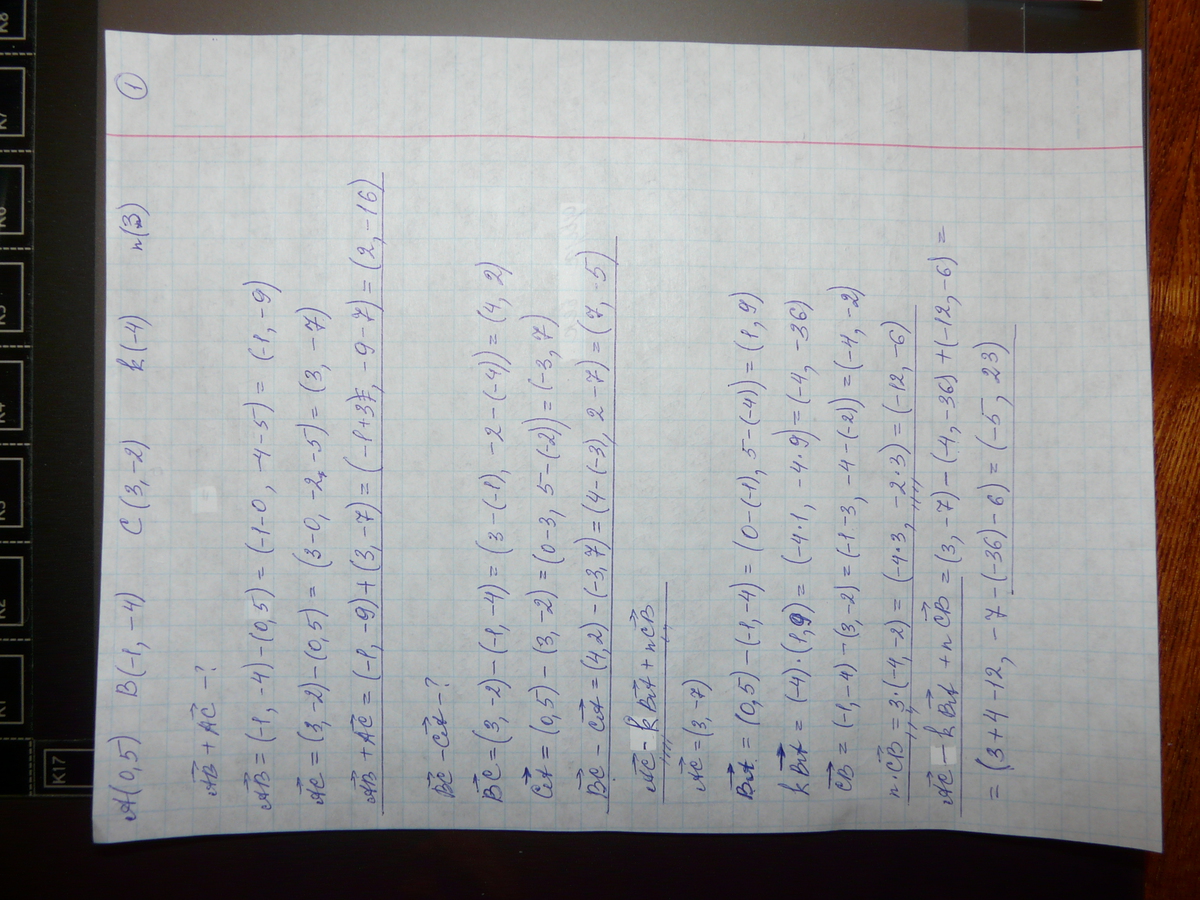 A(0,5) B(-1,-4) C(3,-2) k(-4) n(3) 1
AB + AC - ?
AB = (-1,-4)-(0,5) = (-1-0, -4-5) = (-1,-9)
AC = (3,-2)-(0,5) = (3-0, -2-5) = (3,-7)
AB + AC = (-1,-9)+(3,-7) = (-1+3, -9-7) = (2,-16)
BC - CA - ?
BC = (3,-2)-(-1,-4) = (3-(-1), -2-(-4)) = (4, 2)
CA = (0,5)-(3,-2) = (0-3, 5-(-2)) = (-3, 7)
BC - CA = (4,2)-(-3,7) = (4-(-3), 2-7) = (7,-5)
AC - k BA + n CB
AC = (3,-7)
BA = (0,5)-(-1,-4) = (0-(-1), 5-(-4)) = (1,9)
k BA = (-4)·(1,9) = (-4·1, -4·9) = (-4, -36)
CB = (-1,-4)-(3,-2) = (-1-3, -4-(-2)) = (-4,-2)
n·CB = 3·(-4,-2) = (-4·3, -2·3) = (-12,-6)
AC - k BA + n CB = (3,-7)-(-4,-36)+(-12,-6) =
= (3+4-12, -7-(-36)-6) = (-5, 23)
K8
K7
K6
K5
K4
K3
K2
K1
K17